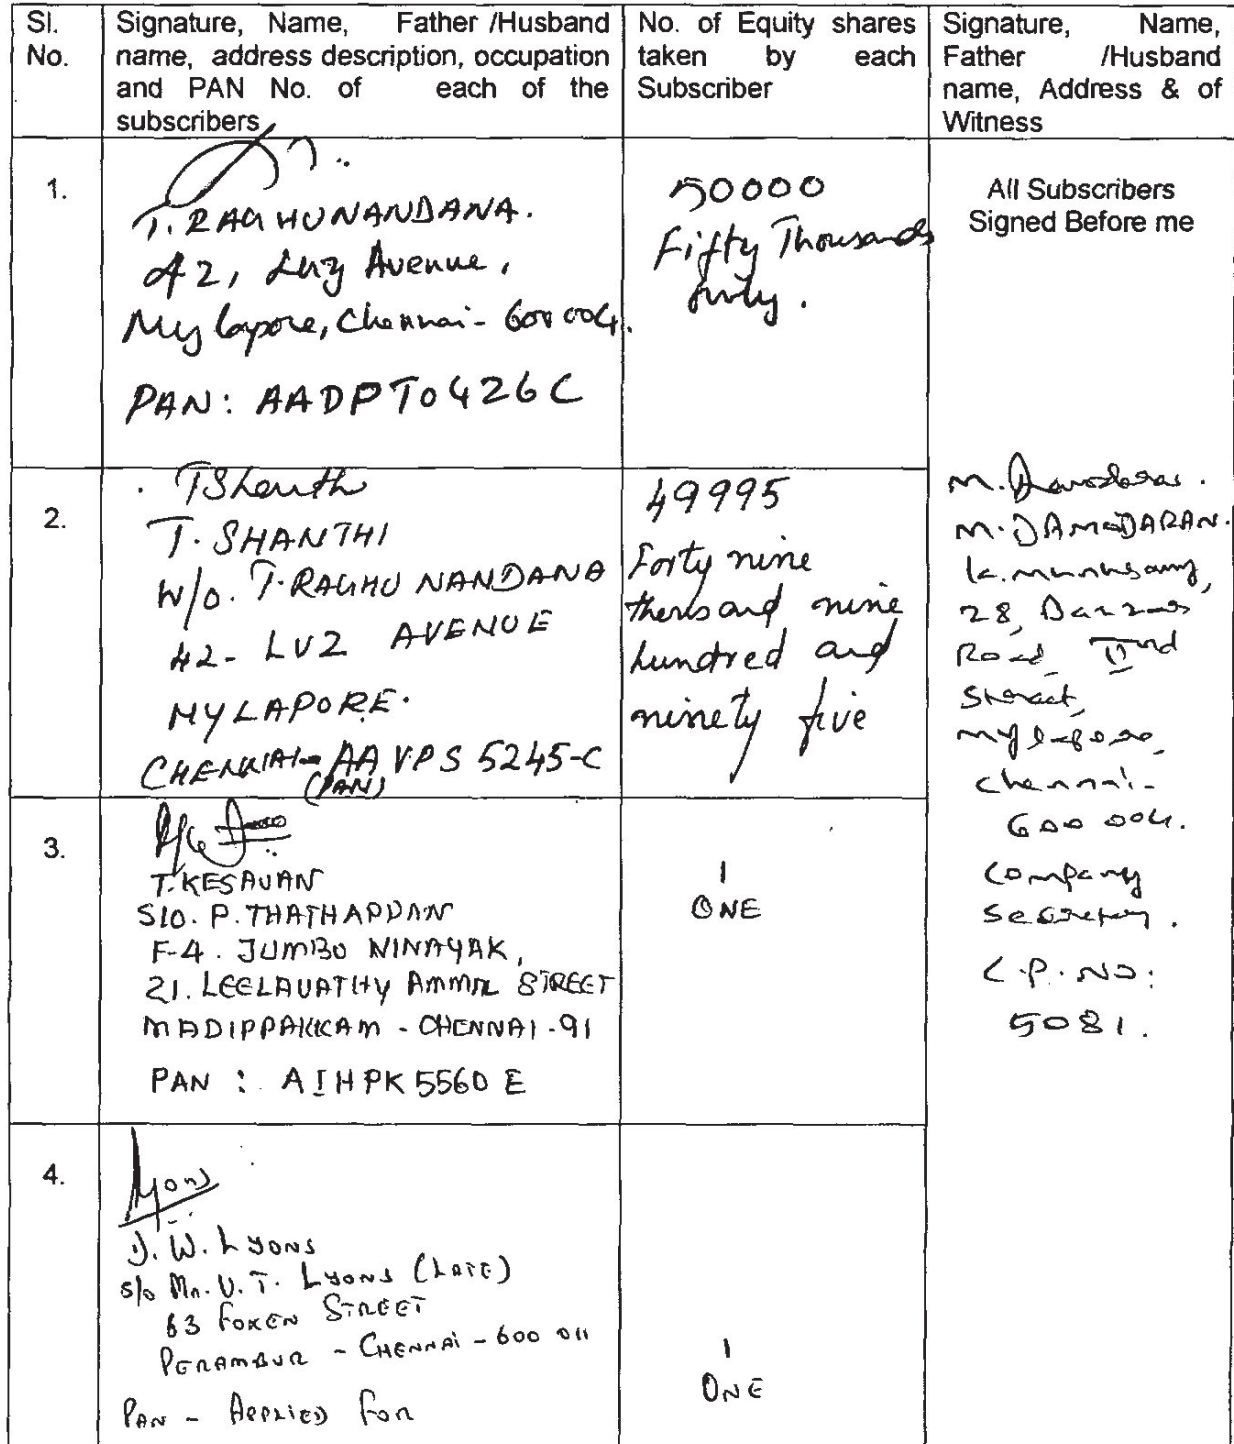 Sl. No.
Signature, Name, Father /Husband name, address description, occupation and PAN No. of each of the subscribers
No. of Equity shares taken by each Subscriber
Signature, Name, Father /Husband name, Address & of Witness
1.
T. RAGHUNANDANA.
42, Luz Avenue,
Mylapore, Chennai - 600 004.
PAN: AADPT0426C
50000
Fifty Thousands
only.
All Subscribers
Signed Before me
2.
TShanthi
T. SHANTHI
W/o. T. RAGHU NANDANA
42- LUZ AVENUE
MYLAPORE.
CHENNAI- AAVPS 5245-C
(PAN)
49995
Forty nine
thousand nine
hundred and
ninety five
M. Damodaran.
M. DAMODARAN.
K. Munusamy,
28,
Road IInd
Street,
Mylapore,
Chennai-
600 004.
Company
Secretary.
C.P. NO:
5081.
3.
T. KESAVAN
S/O. P. THATHAPPAN
F-4. JUMBO NINAYAK,
21. LEELAVATHY AMMAL STREET
MADIPPAKKAM - CHENNAI - 91
PAN : AIHPK 5560 E
1
ONE
4.
Lyons
D. W. Lyons
S/o Mr. V. T. Lyons (Late)
63 Foxen Street
Perambur - Chennai - 600 011
Pan - Applied For
1
ONE